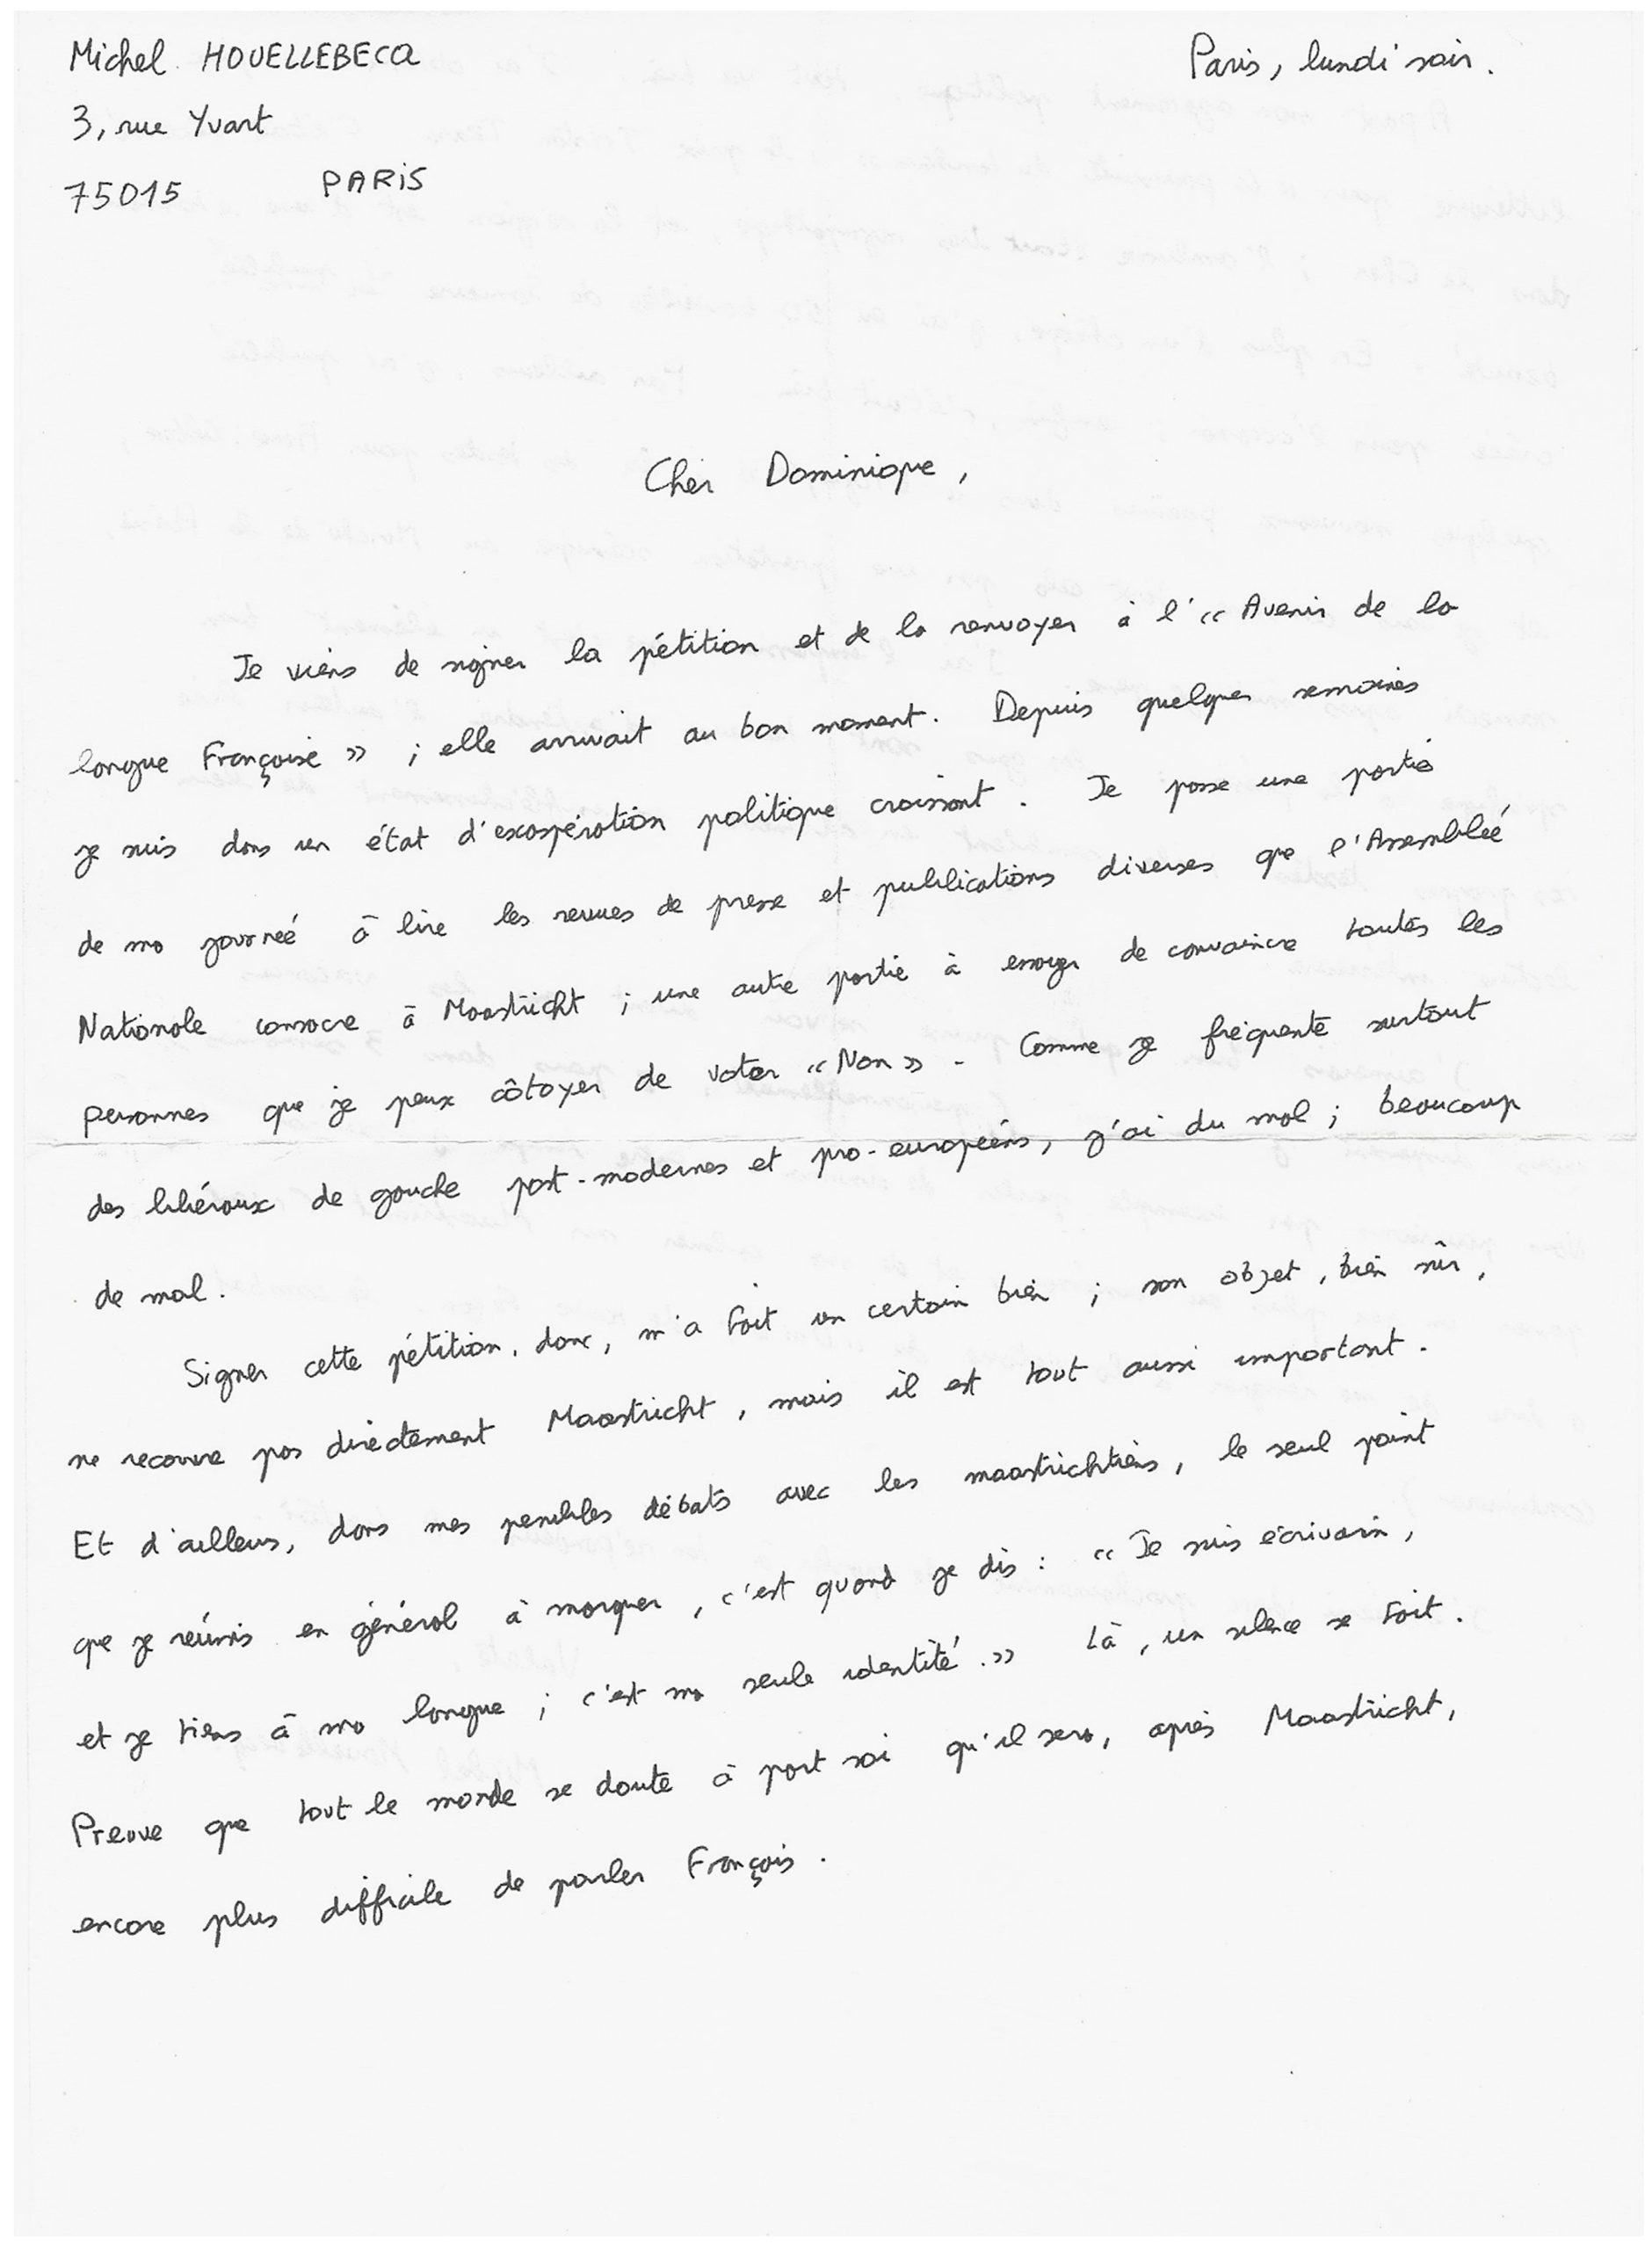 Michel HOUELLEBECQ
Paris, lundi soir.
3, rue Yvart
75015 PARIS
Cher Dominique,
Je viens de signer la pétition et de la renvoyer à l'« Avenir de la
langue Française » ; elle arrivait au bon moment. Depuis quelques semaines
je suis dans un état d'exaspération politique croissant. Je passe une partie
de ma journée à lire les revues de presse et publications diverses que l'Assemblée
Nationale consacre à Maastricht ; une autre partie à essayer de convaincre toutes les
personnes que je peux côtoyer de voter « Non ». Comme je fréquente surtout
des libéraux de gauche post-modernes et pro-européens, j'ai du mal ; beaucoup
de mal.
Signer cette pétition, donc, m'a fait un certain bien ; son objet, bien sûr,
ne recouvre pas directement Maastricht, mais il est tout aussi important.
Et d'ailleurs, dans mes pénibles débats avec les maastrichtiens, le seul point
que je réussis en général à marquer, c'est quand je dis : « Je suis écrivain,
et je tiens à ma langue ; c'est ma seule identité. » Là, un silence se fait.
Preuve que tout le monde se doute à part soi qu'il sera, après Maastricht,
encore plus difficile de parler Français.